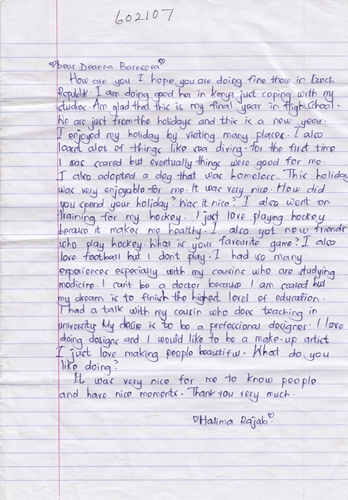 602107
Dear Deanna Baresova
How are you I hope you are doing fine there in Czech
Republik I am doing good her in Kenya just coping with my
studies. Am glad that this is my final year in Highschool.
We are just from the holidays and this is a new year.
I enjoyed my holiday by visiting many places. I also
learnt alot of things like sea diving for the first time
I was scared but eventually things were good for me.
I also adopted a dog that was homeless. This holiday
was very enjoyable for me. It was very nice. How did
you spend your holiday? Was it nice? I also went on
training for my hockey. I just love playing hockey
because it makes me healthy. I also got new friends
who play hockey. What is your favourite game? I also
love football but I don't play. I had so many
experiences especially with my cousins who are studying
medicine. I can't be a doctor because I am scared but
my dream is to finish the highest level of education.
I had a talk with my cousin who does teaching in
university. My desire is to be a professional designer. I love
doing designs and I would like to be a make-up artist
I just love making people beautiful. What do you
like doing?
It was very nice for me to know people
and have nice moments. Thank you very much.
Halima Rajab